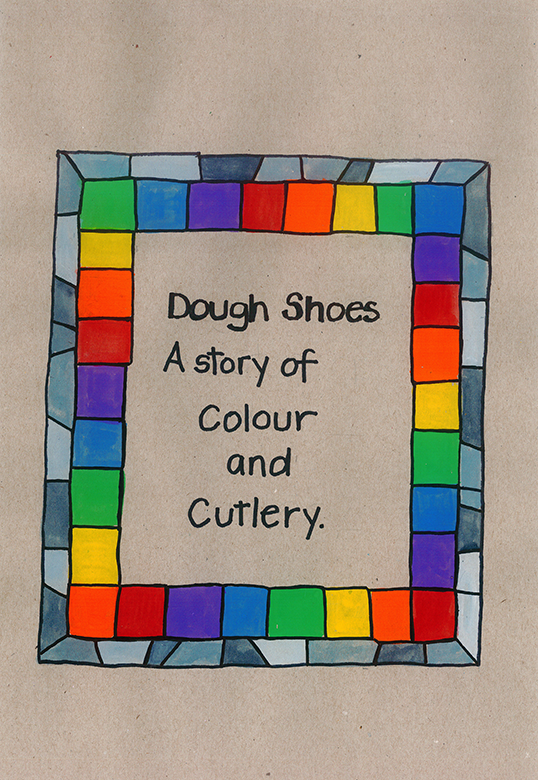 Dough Shoes
A story of
Colour
and
Cutlery.